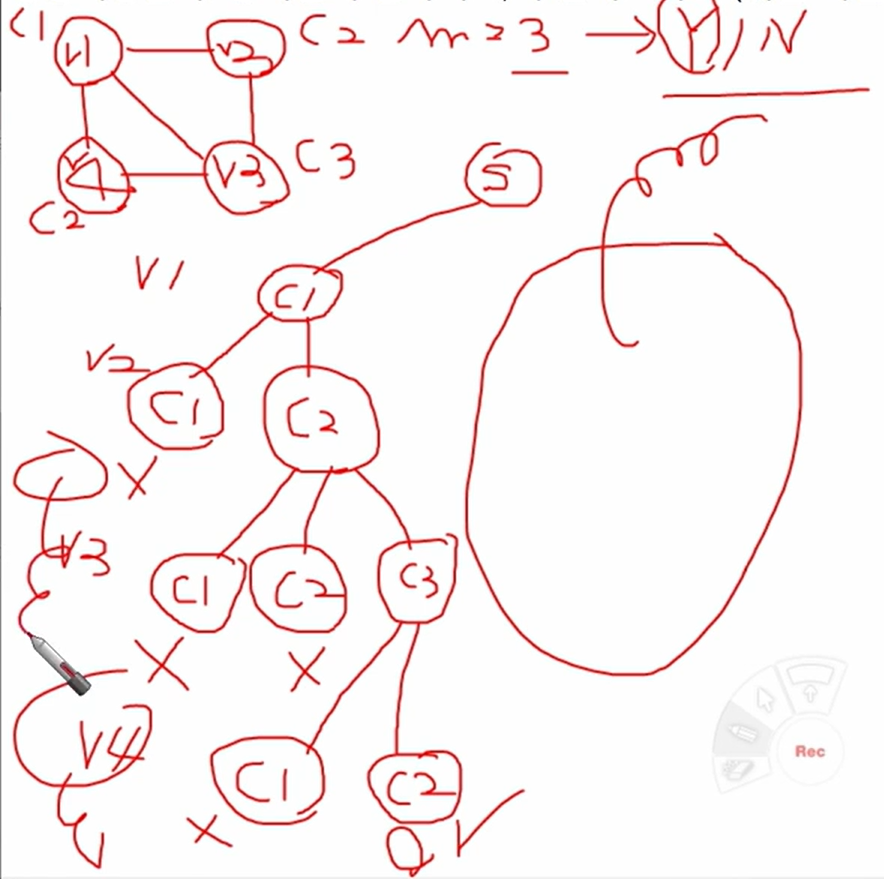 C1 V1 V2 C2 m=3 → Y/N
V4 V3 C3
C2
S
V1 C1
V2 C1 C2
X
V3 C1 C2 C3
X X
V4 C1 C2
X
Rec